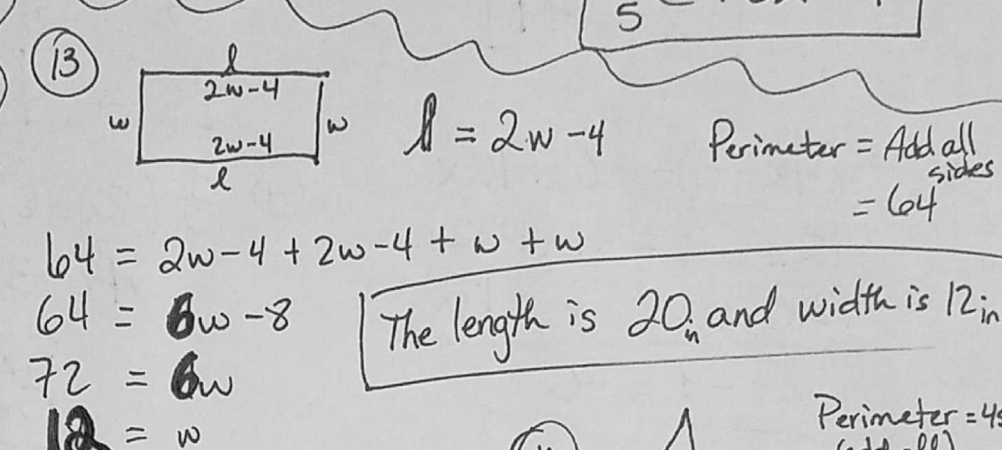 5
13
l
2w-4
w
w
2w-4
l
l = 2w-4
Perimeter = Add all
sides
= 64
64 = 2w-4 + 2w-4 + w + w
64 = 6w -8
72 = 6w
12 = w
The length is 20in and width is 12in
Perimeter =